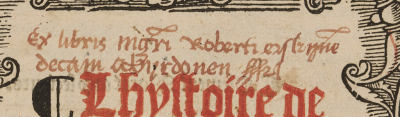 Ex libris mgri Roberti erskyne
decani abyrdonen
Lhystoire de